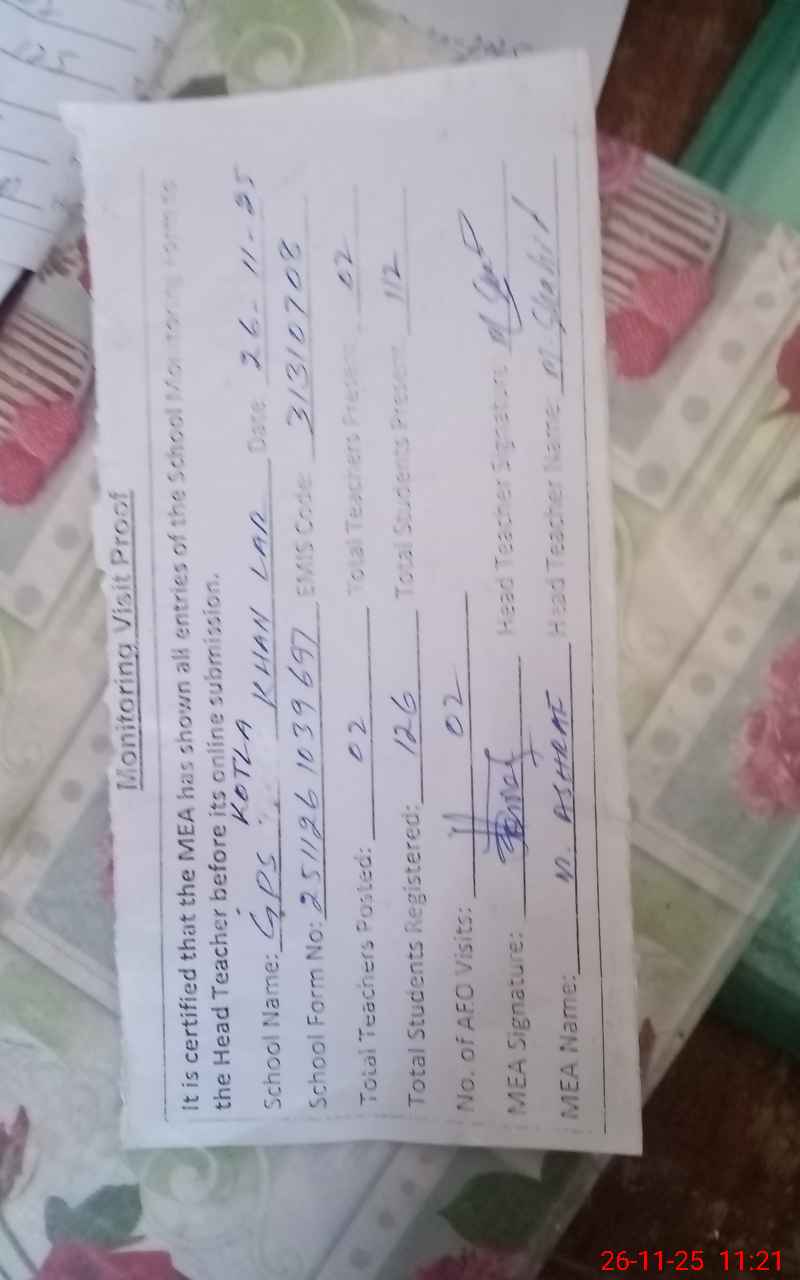 Monitoring Visit Proof
It is certified that the MEA has shown all entries of the School Monitoring Form to
the Head Teacher before its online submission.
School Name: GPS KOTLA KHAN LAR Date: 26-11-25
School Form No: 251126 1039697 EMIS Code: 31310708
Total Teachers Posted: 02 Total Teachers Present: 02
Total Students Registered: 126 Total Students Present: 112
No. of AEO Visits: 02
MEA Signature: Head Teacher Signature:
MEA Name: M. ASHRAF Head Teacher Name: M. Shahid
26-11-25 11:21